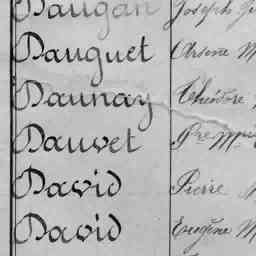 Daugan Joseph
Dauguet Arsène M
Daunay Théodore
Dauvet
David Pierre
David Eugène M